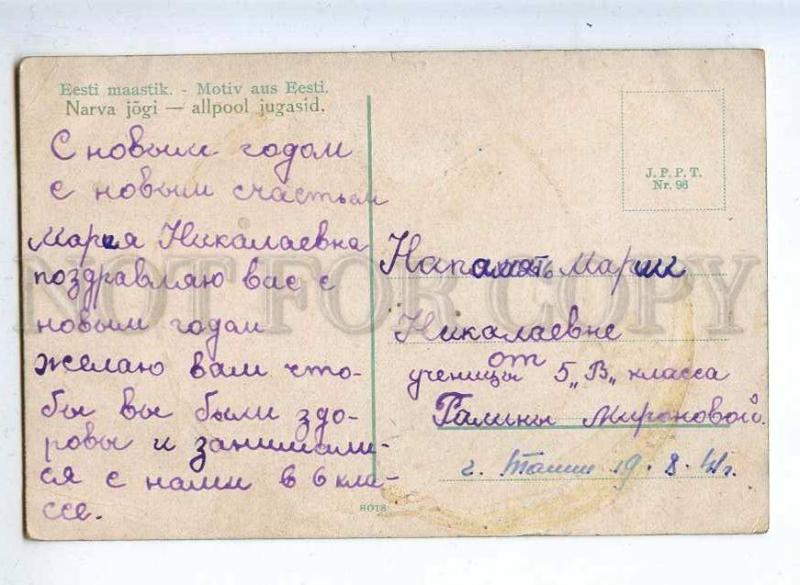 Eesti maastik. - Motiv aus Eesti.
Narva jõgi — allpool jugasid.
С новым годом
с новым счастьем
Мария Никалаевна
поздравляю вас с
новым годом
желаю вам что-
бы вы были здо-
ровы и занимали-
ся с нами в 6 кла-
ссе.
НОТS
J. P. P. T.
Nr. 96
Напамять Марии
Никалаевне
от
ученицы 5 „В„ класса
Галины Мироновой.
г. 19. 8. 41г.
NOT FOR COPY